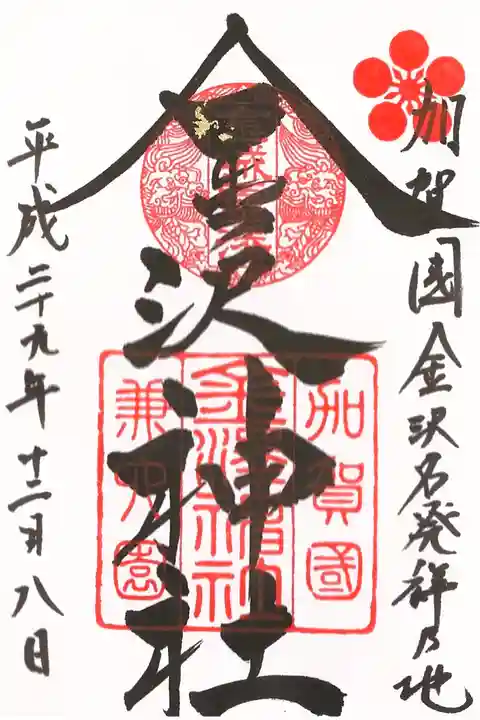 加賀國金沢名発祥乃地
金沢神社
加賀國
金澤神社
兼六園
平成二十九年十二月八日